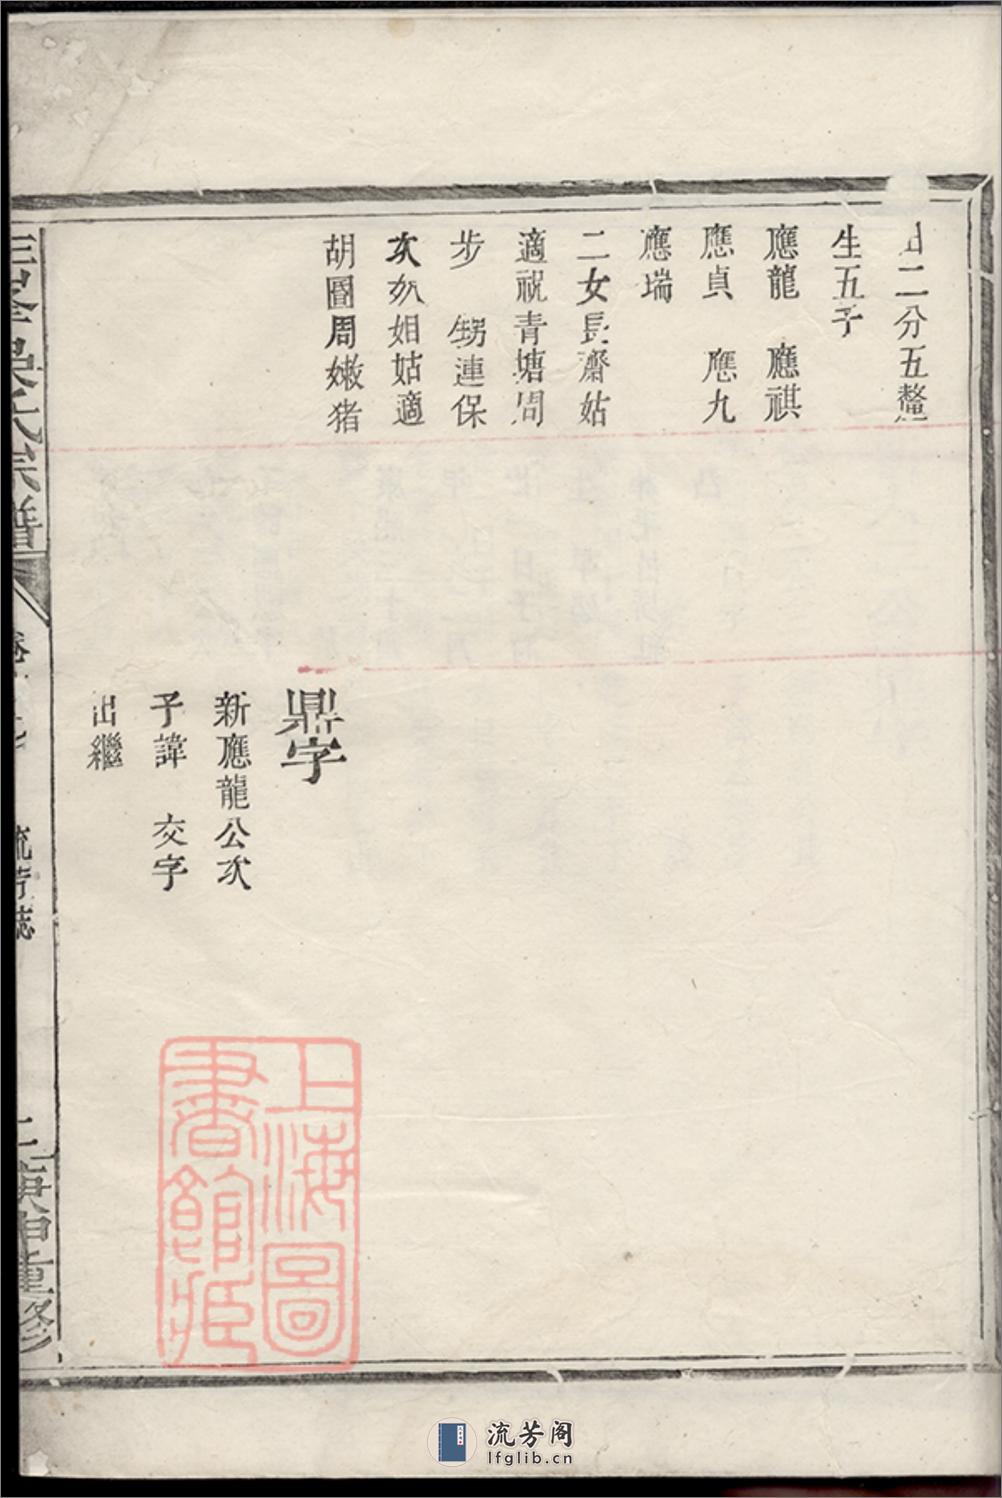 二分五釐
生五子
應龍 應祺
應貞 應九
應瑞
二女長齋姑
適祝青塘周
步 甥連保
次姐姑適
胡圖周嫩猪
鼎字
新應龍公次
子諱 交字
出繼
氏宗譜
流芳誌
二
庚申重修
上海圖
書館藏
流芳阁
lfglib.cn